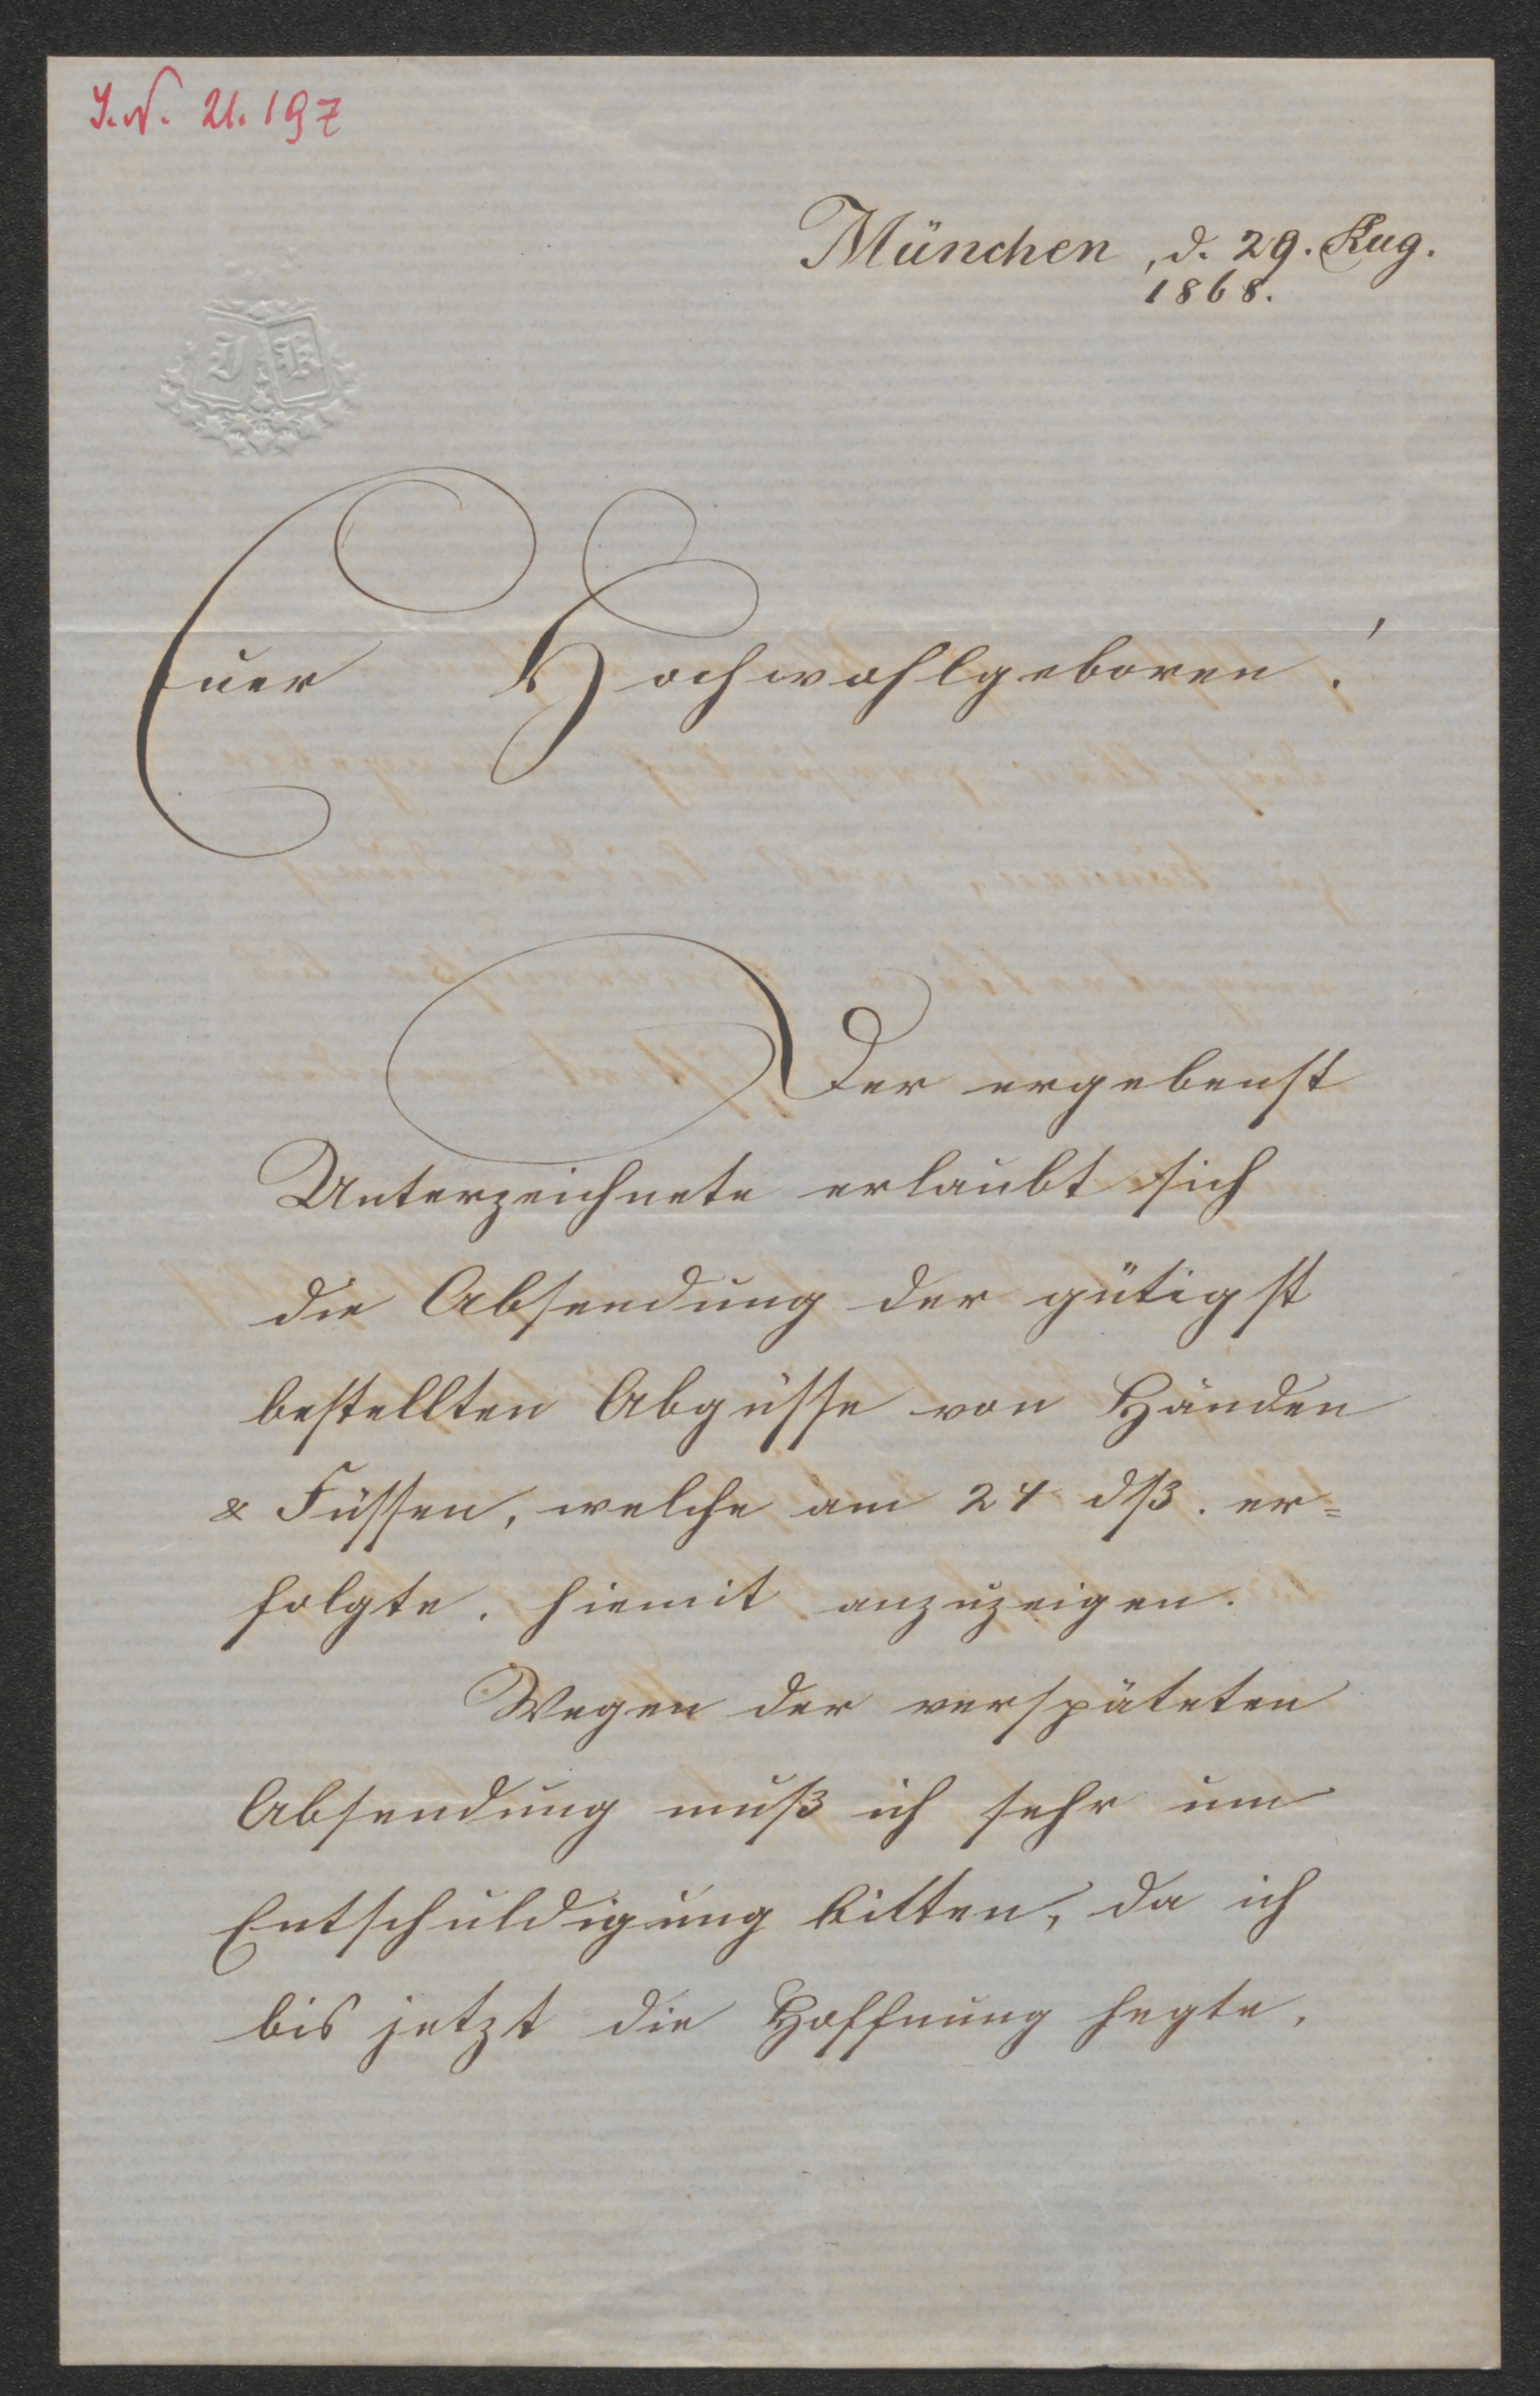 J.N. 21.197
München, d. 29. Aug.
1868.
J K
Euer Hochwohlgeboren!
Der ergebenst
Unterzeichnete erlaubt sich
die Absendung der gütigst
bestellten Abgüsse von Händen
& Füssen, welche am 24 dß. er=
folgte, hiemit anzuzeigen.
Wegen der verspäteten
Absendung muß ich sehr um
Entschuldigung bitten, da ich
bis jetzt die Hoffnung hegte,